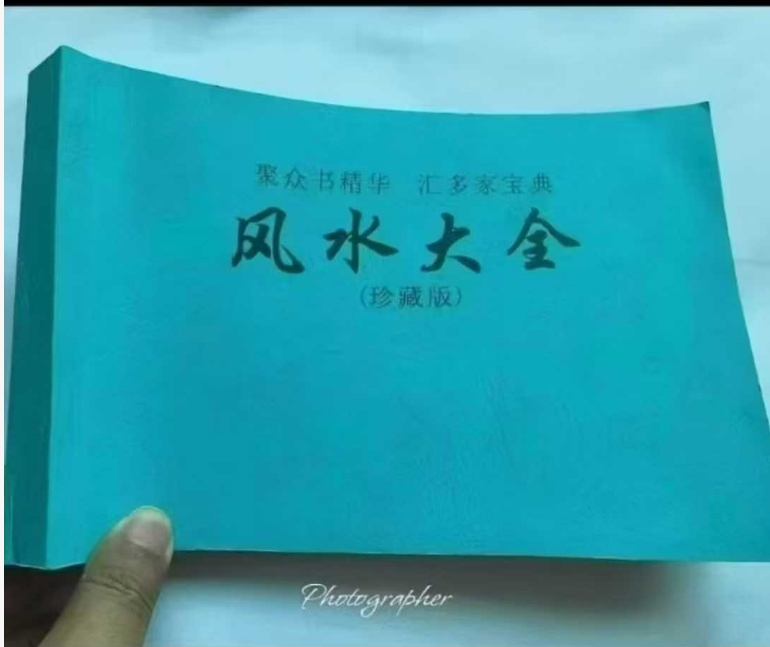 聚众书精华 汇多家宝典
风水大全
(珍藏版)
Photographer